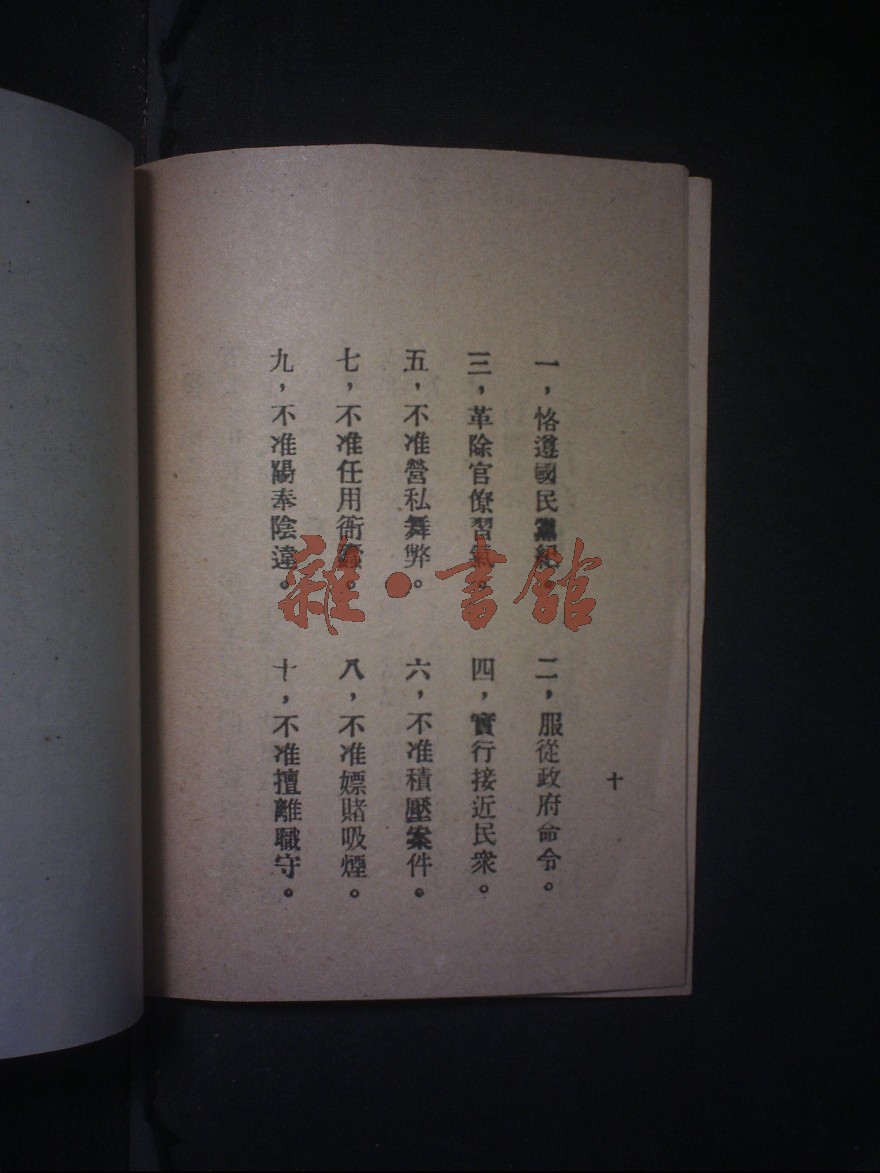 十
一，恪遵國民黨紀。 二，服從政府命令。
三，革除官僚習氣。 四，實行接近民衆。
五，不准營私舞弊。 六，不准積壓案件。
七，不准任用衙蠹。 八，不准嫖賭吸煙。
九，不准陽奉陰違。 十，不准擅離職守。
雜·書館